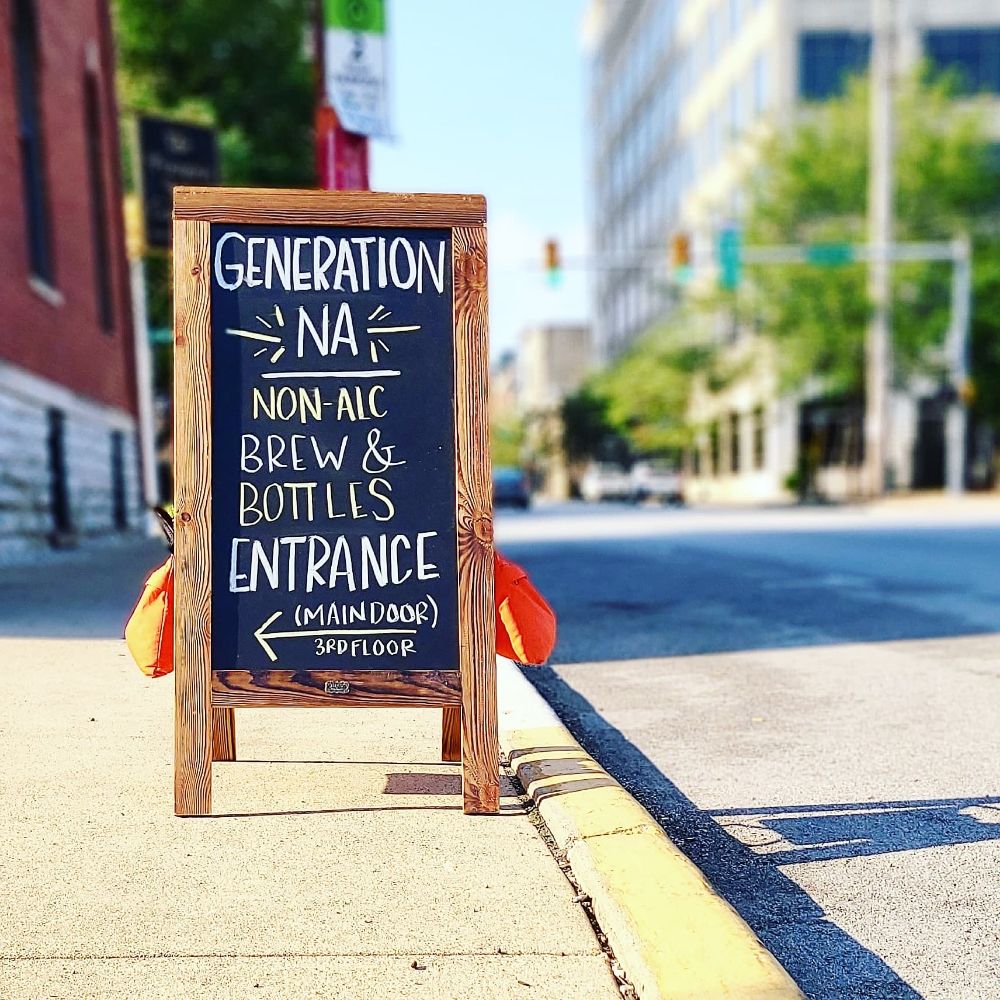 GENERATION
NA
NON-ALC
BREW &
BOTTLES
ENTRANCE
(MAIN DOOR)
3RD FLOOR